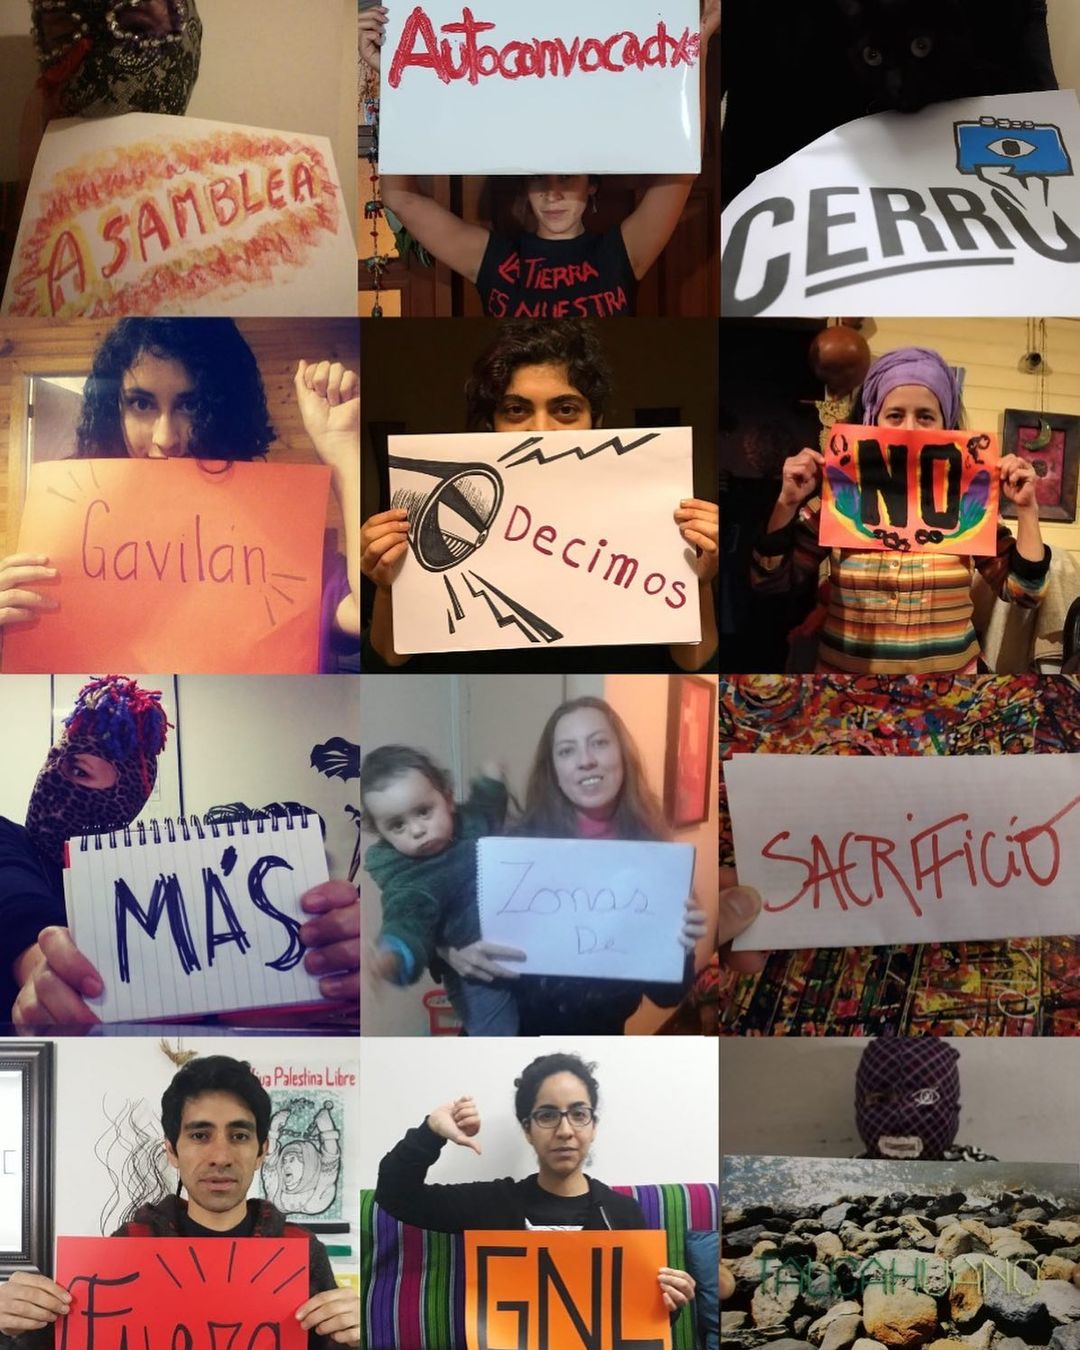 ASAMBLEA
Autoconvocadxs
LA TIERRA
ES NUESTRA
CERRO
Gavilán
Decimos
NO
MÁS
Zonas
De
SACRIFICIO
Viva Palestina Libre
Fuera
GNL
TALCAHUANO